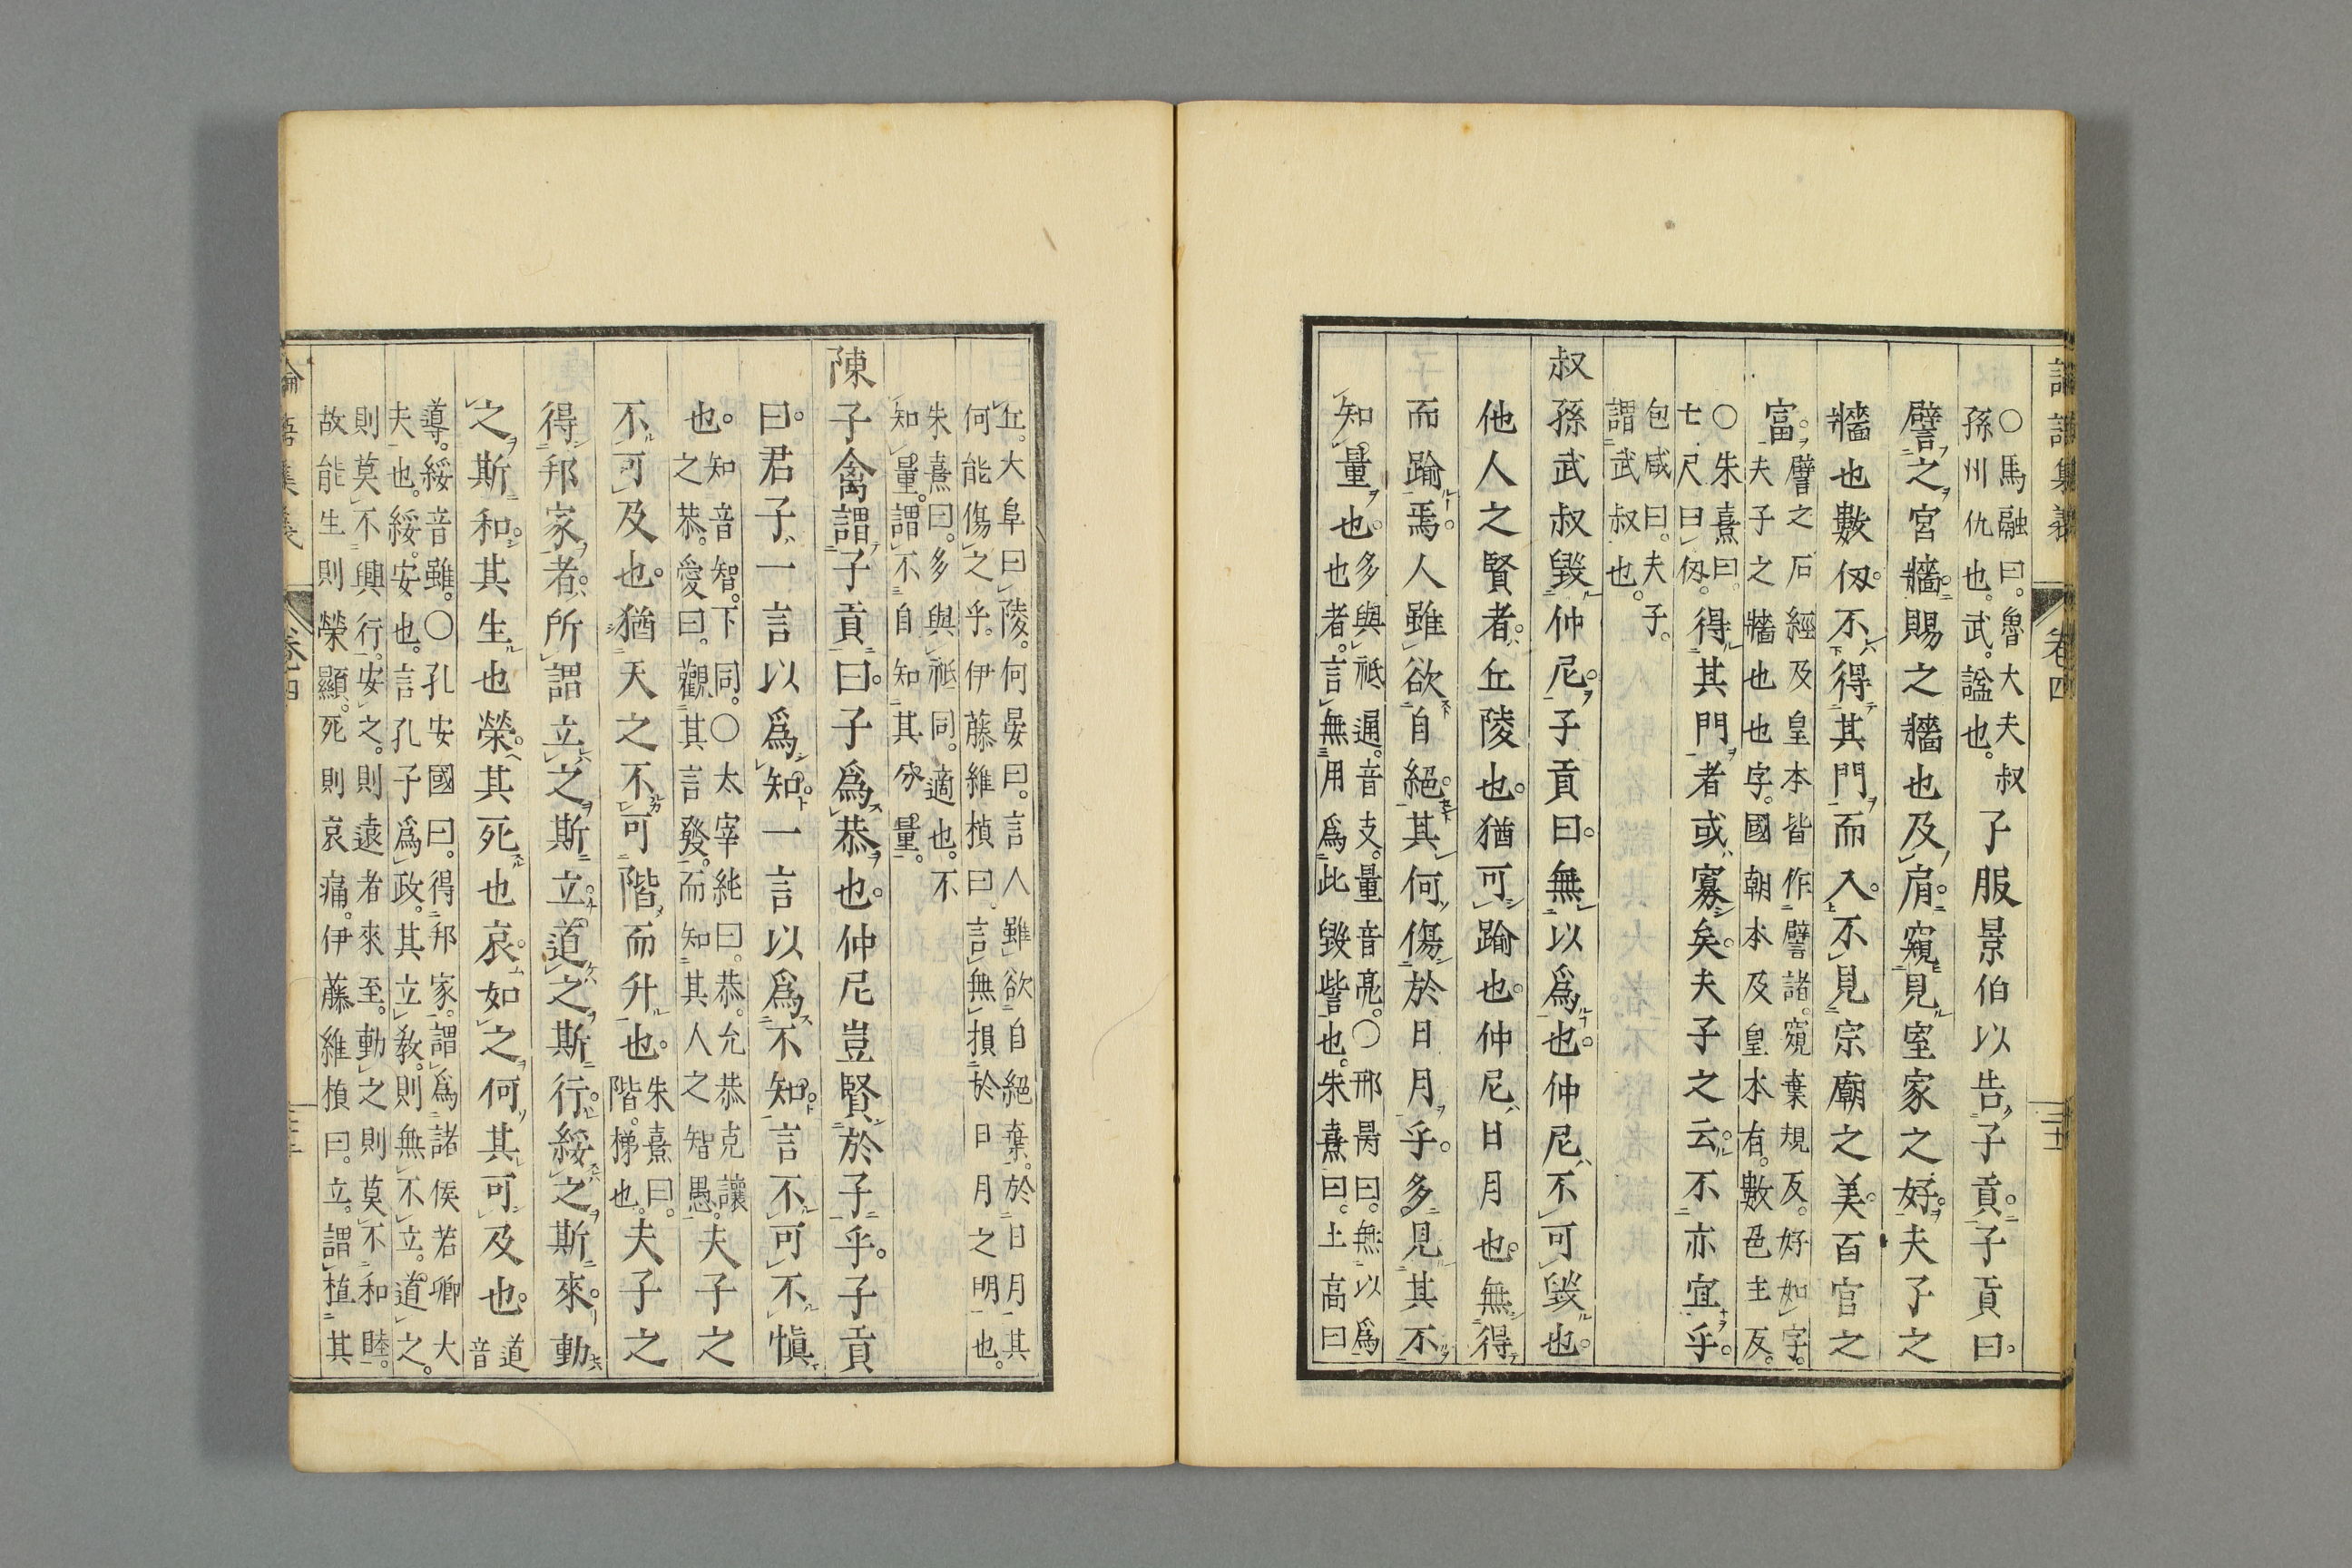 論語集義 卷四
○馬融曰。魯大夫叔
孫州仇也。武。諡也。
子服景伯以告子貢。子貢曰。
譬之宮牆。賜之牆也及肩。窺見室家之好。夫子之
牆也數仭。不得其門而入。不見宗廟之美。百官之
富。
譬之石經及皇本皆作譬諸。窺棄規反。好如字。
夫子之牆也也字。國朝本及皇本有。數色主反。
○朱熹曰。
七尺曰仭。
得其門者或寡矣。夫子之云。不亦宜乎。
包咸曰。夫子。
謂武叔也。
叔孫武叔毀仲尼。子貢曰。無以爲也。仲尼不可毀也。
他人之賢者。丘陵也。猶可踰也。仲尼日月也。無得
而踰焉。人雖欲自絕。其何傷於日月乎。多見其不
知量也。
多與祗通。音支。量音亮。○邢昺曰。無以爲
也者。言無用爲此毀訾也。朱熹曰。土高曰
丘。大阜曰陵。何晏曰。言人雖欲自絕棄。於日月其
何能傷之乎。伊藤維楨曰。言無損於日月之明也。
朱熹曰。多與祗同。適也。不
知量。謂不自知其分量。
陳子禽謂子貢曰。子爲恭也。仲尼豈賢於子乎。子貢
曰。君子一言以爲知。一言以爲不知。言不可不愼
也。
知音智。下同。○太宰純曰。恭。允恭克讓
之恭。愛曰。觀其言發。而知其人之智愚。
夫子之
不可及也。猶天之不可階而升也。
朱熹曰。
階。梯也。
夫子之
得邦家者。所謂立之斯立。道之斯行。綏之斯來。動
之斯和。其生也榮。其死也哀。如之何其可及也。
道音
導。綏音雖。○孔安國曰。得邦家。謂爲諸侯若卿大
夫也。綏。安也。言孔子爲政。其立敎。則無不立。道之。
則莫不興行。安之。則遠者來至。動之則莫不和睦。
故能生則榮顯。死則哀痛。伊藤維楨曰。立。謂植其
論語集義 卷四